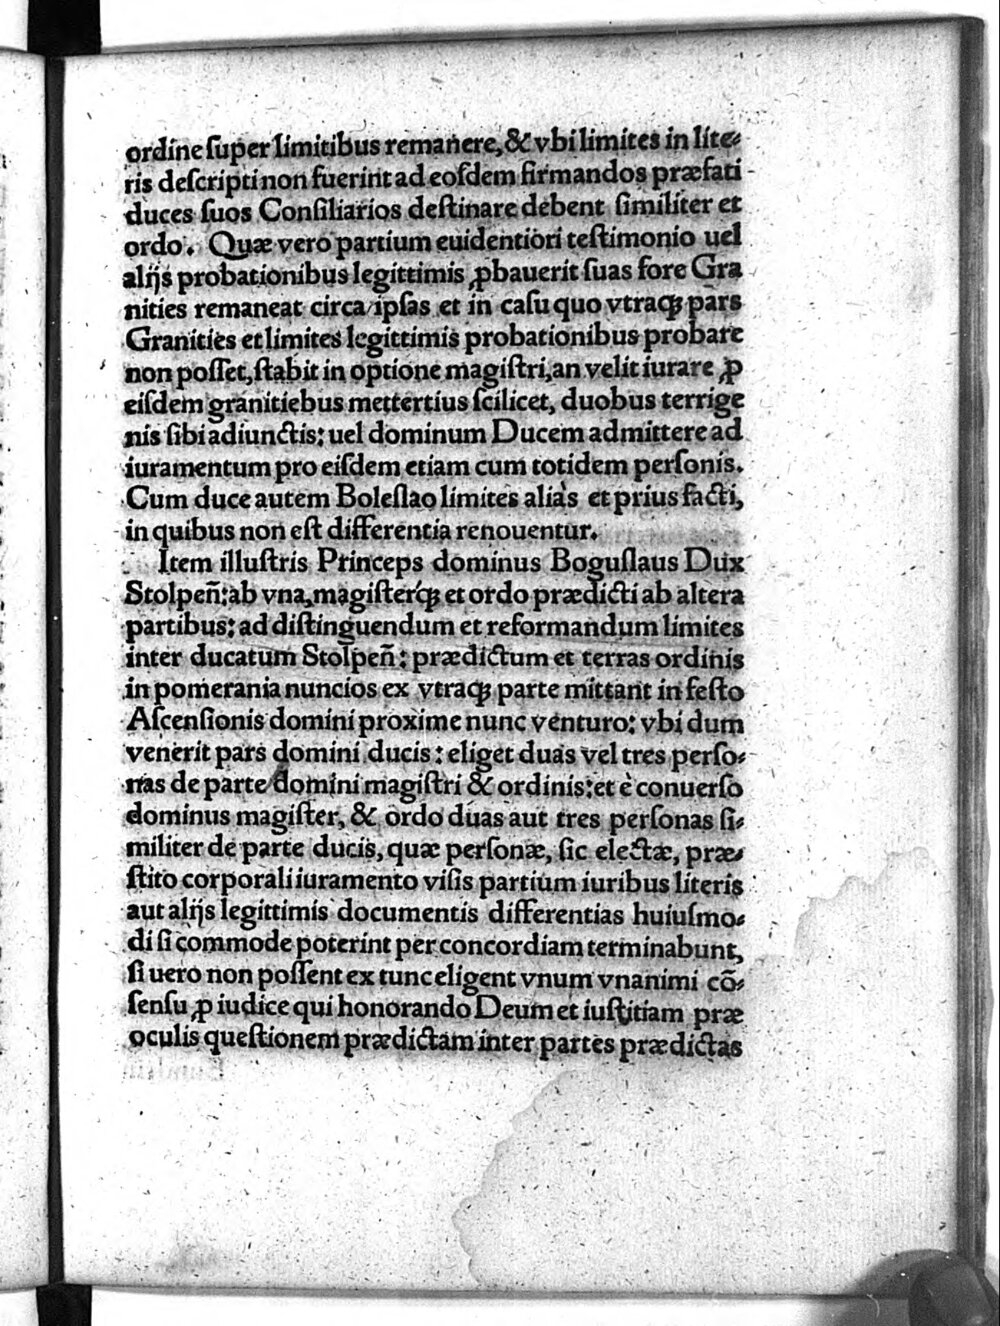 ordine ſuper limitibus remanere, & vbi limites in lite⸗
ris deſcripti non fuerint ad eoſdem firmandos præfati
duces ſuos Conſiliarios deſtinare debent ſimiliter et
ordo. Quæ vero partium euidentiori teſtimonio uel
alijs probationibus legittimis ꝓbauerit ſuas fore Gra
nities remaneat circa ipſas et in caſu quo vtraqꝫ pars
Granities et limites legittimis probationibus probare
non poſſet, ſtabit in optione magiſtri, an velit iurare ꝓ
eiſdem granitiebus mettertius ſcilicet, duobus terrige
nis ſibi adiunctis: uel dominum Ducem admittere ad
iuramentum pro eiſdem etiam cum totidem perſonis.
Cum duce autem Boleſlao limites aliàs et prius facti,
in quibus non eſt differentia renouentur.
Item illuſtris Princeps dominus Boguſlaus Dux
Stolpen̄: ab vna, magiſterq́ꝫ et ordo prædicti ab altera
partibus: ad diſtinguendum et reformandum limites
inter ducatum Stolpen̄: prædictum et terras ordinis
in pomerania nuncios ex vtraqꝫ parte mittant in feſto
Aſcenſionis domini proxime nunc venturo: vbi dum
venerit pars domini ducis: eliget duas vel tres perſo⸗
nas de parte domini magiſtri & ordinis: et è conuerſo
dominus magiſter, & ordo duas aut tres perſonas ſi⸗
militer de parte ducis, quæ perſonæ, ſic electæ, præ⸗
ſtito corporali iuramento viſis partium iuribus literis
aut alijs legittimis documentis differentias huiuſmo⸗
di ſi commode poterint per concordiam terminabunt,
ſi uero non poſſent ex tunc eligent vnum vnanimi cō⸗
ſenſu ꝓ iudice qui honorando Deum et iuſtitiam præ
oculis queſtionem prædictam inter partes prædictas